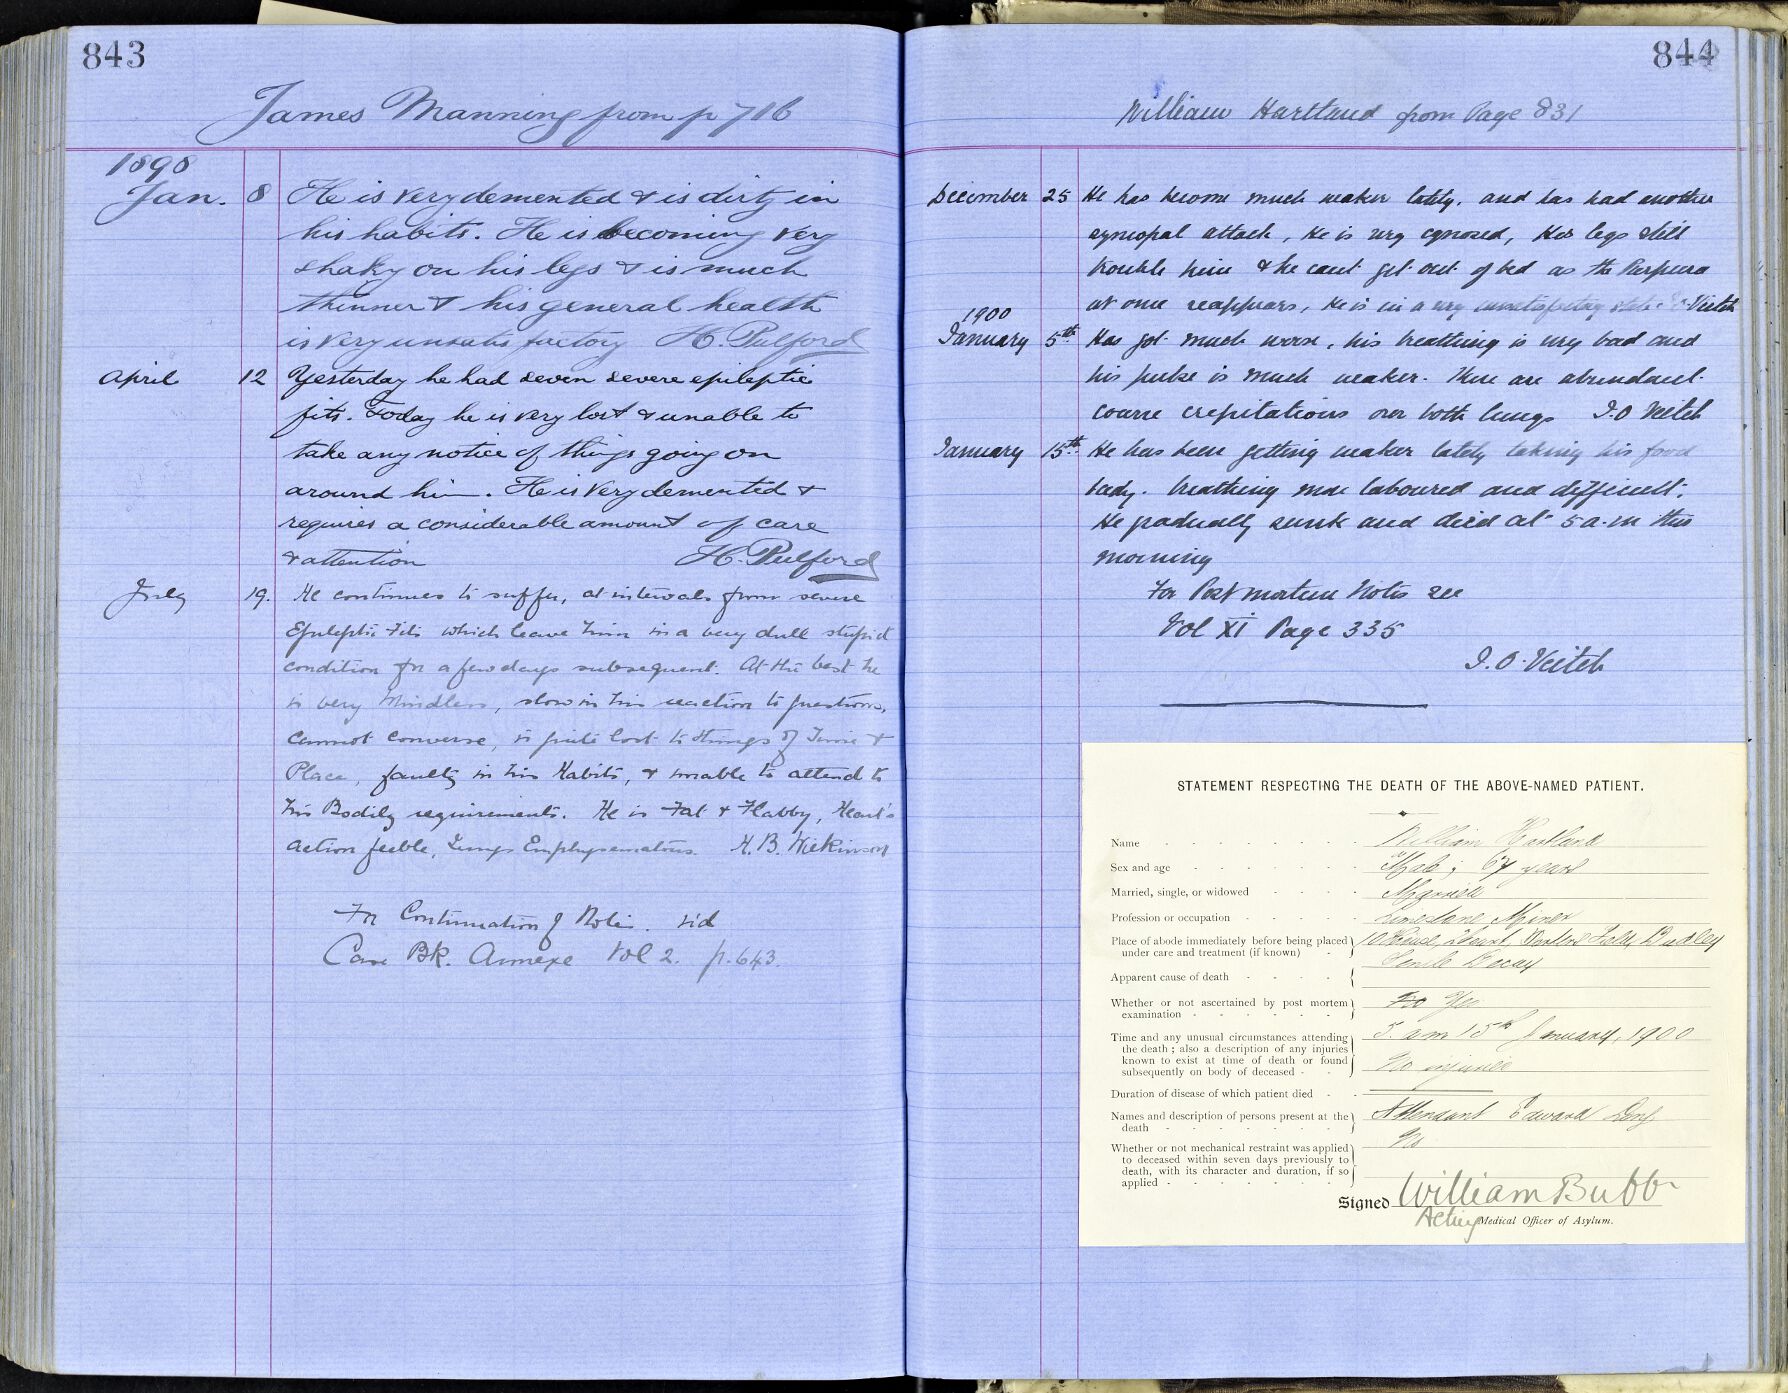 843
James Manning from p 716
1898
Jan. 8 He is very demented & is dirty in
his habits. He is becoming very
shaky on his legs & is much
thinner & his general health
is very unsatisfactory H. Pulford
April 12 Yesterday he had seven severe epileptic
fits. Today he is very lost & unable to
take any notice of things going on
around him. He is very demented &
requires a considerable amount of care
& attention H. Pulford
July 19. He continues to suffer, at intervals from severe
Epileptic Fits which leave him in a very dull stupid
condition for a few days subsequent. At the best he
is very Mindless, slow in his reaction to questions,
cannot converse, is quite lost to things of Time &
Place, faulty in his Habits, & unable to attend to
his Bodily requirements. He is Fat & Flabby, Heart's
action feeble, Lungs Emphysematous. H. B. Wilkinson
For Continuation of Notes. vid
Case Bk. Annexe Vol 2. p. 643.
844
William Hartland from Page 831
December 25 He has become much weaker lately. and has had another
syncopal attack, He is very cyanosed, His legs still
trouble him & he cant get out of bed as the Purpura
at once reappears, He is in a very unsatisfactory state Veitch
1900
January 5th Has got much worse, his breathing is very bad and
his pulse is much weaker. There are abundant
coarse crepitations over both lungs J.O Veitch
January 15th He has been getting weaker lately taking his food
badly. breathing more laboured and difficult.
He gradually sunk and died at 5 a.m this
morning
For Post mortem Notes see
Vol XI Page 335
J. O. Veitch
STATEMENT RESPECTING THE DEATH OF THE ABOVE-NAMED PATIENT.
Name William Hartland
Sex and age Male; 67 years
Married, single, or widowed Married
Profession or occupation Limestone Miner
Place of abode immediately before being placed under care and treatment (if known) Dudley
Apparent cause of death Senile Decay
Whether or not ascertained by post mortem examination No Yes
Time and any unusual circumstances attending the death; also a description of any injuries known to exist at time of death or found subsequently on body of deceased 5. am 15th January, 1900
No injuries
Duration of disease of which patient died
Names and description of persons present at the death Attendant Edward
Whether or not mechanical restraint was applied to deceased within seven days previously to death, with its character and duration, if so applied No
Signed William Bubb
Acting Medical Officer of Asylum.